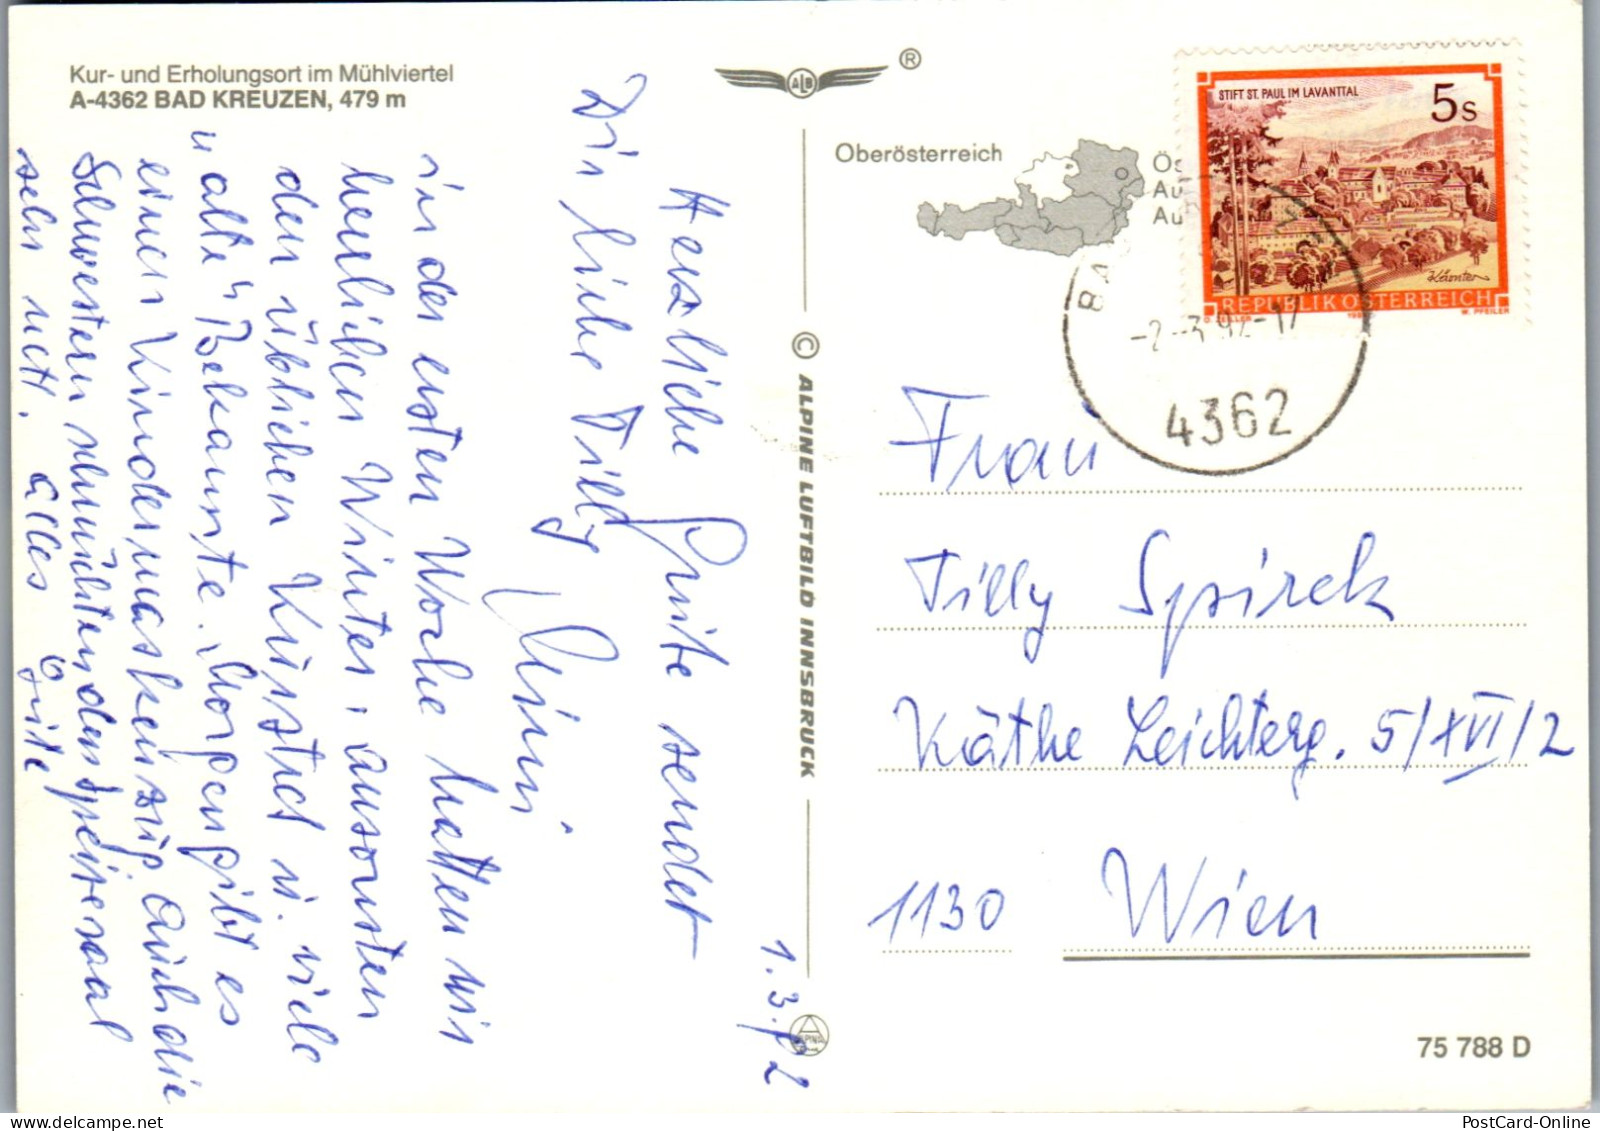 Kur- und Erholungsort im Mühlviertel
A-4362 BAD KREUZEN, 479 m
ALB
®
Oberösterreich
Ös
Au
Au
STIFT ST. PAUL IM LAVANTTAL
5 S
Kärnten
REPUBLIK ÖSTERREICH
W. PFEILER
-2.-3.92-17
4362
1.3.92
Dir liebe Tilly
Herzliche Grüße sendet
Mimi
in der ersten Woche hatten wir
herrliches Winter, ansonsten
den üblichen Kurstret u. viele
"alte" Bekannte. Morgen gibt es
einen Kindermaskenzug auch die
Schwestern schmückten den Speisesaal
sehr nett. Alles Gute
© ALPINE LUFTBILD INNSBRUCK
Frau
Tilly Spirek
Käthe Leichterg. 5/XVI/2
1130 Wien
75 788 D
PostCard-Online